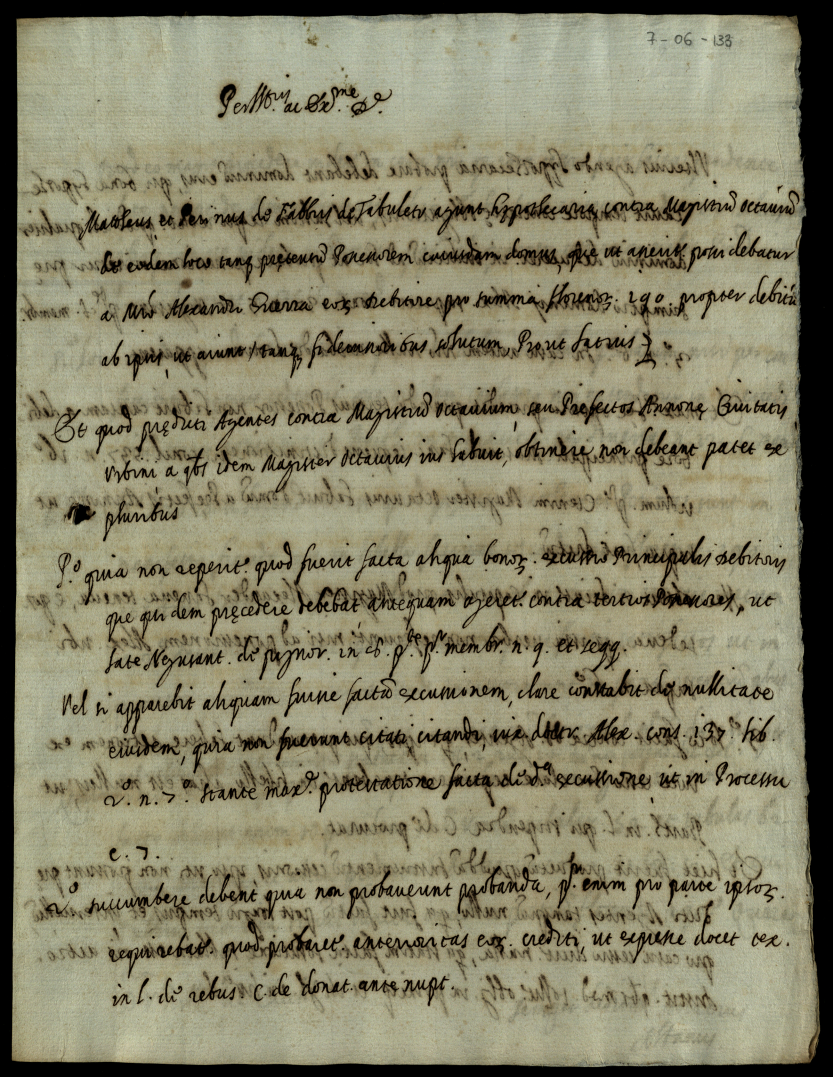 7-06-133
Per Ill.ris ac Ex.me D.ne
Mattheus et Perinus de Fabbris de Tabuleto agunt hypothecaria contra Magistrũ Octaviũ
de eodem loco tanq̃ prętensũ Possessorem cuiusdam domus, quę ut asserit.r possidebatur
a M.ro Alexandro Guerra eoꝝ debitore pro summa florenoꝝ. 190. propter debitũ
ab ipsis, ut aiunt / tanq̃ fideiussoribus solutum, Prout latius
Et quod prędicti Agentes contra Magistrũ Octavium, seu Pręfectos Annonę Civitatis
Urbini a q̃bs idem Magister Octavius ius habuit, obtinere non debeant patet ex
pluribus
P.o quia non reperit.r quod fuerit facta aliqua bonoꝝ. excussio Principalis debitoris
que quidem pręcedere debebat antequam ageret.r contra tertios Possessores, ut
late Negusant. de pignor. in 8. p.te p.o membr. n. 9. et seqq.
Vel si apparebit aliquam fuisse factã excussionem, clare constabit de nullitate
eiusdem, quia non fuerunt citati citandi, iux. doctr. Alex. cons. 137. lib.
2.o n. 7.o stante max.e protestatione facta de d.a excussione, ut in Processu
c. 7.
2.o succumbere debent quia non probaverunt probanda, p.o enim pro parte ipsoꝝ.
requirebat.r quod probaret.r anterioritas eoꝝ. crediti, ut expresse docet tex.
in l. de rebus C. de donat. ante nupt.